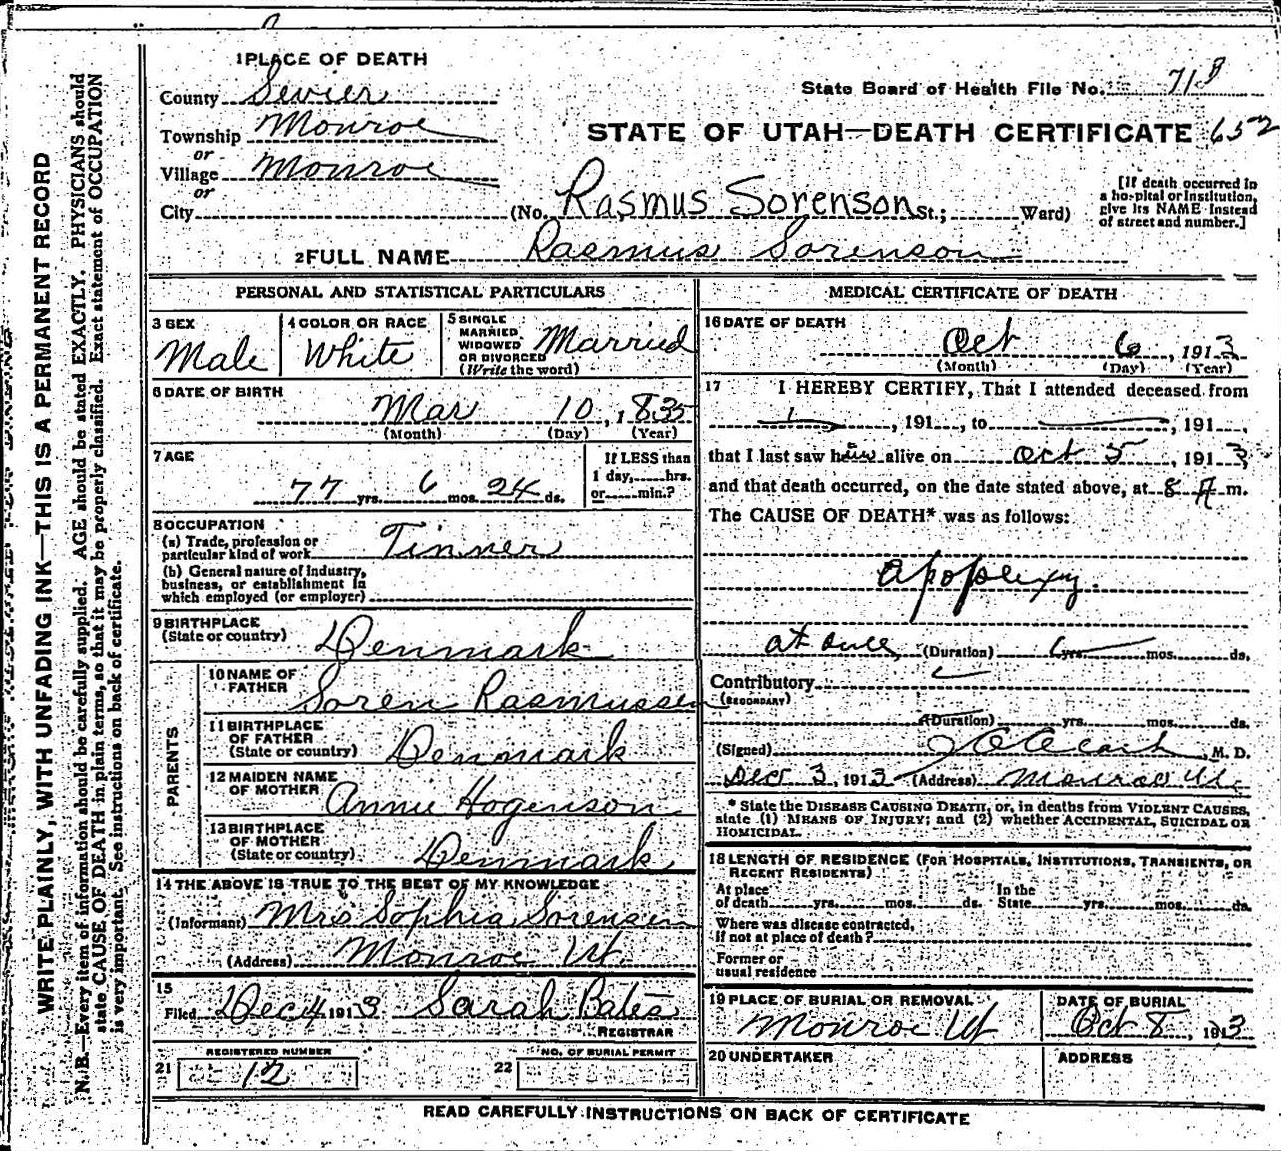 1 PLACE OF DEATH
County Sevier
State Board of Health File No. 718
Township Monroe
STATE OF UTAH—DEATH CERTIFICATE 652
or
Village Monroe
or
City (No. Rasmus Sorenson St.; Ward)
[If death occurred in a hospital or institution, give its NAME instead of street and number.]
2 FULL NAME Rasmus Sorenson
PERSONAL AND STATISTICAL PARTICULARS
3 SEX Male
4 COLOR OR RACE White
5 SINGLE MARRIED WIDOWED OR DIVORCED (Write the word) Married
6 DATE OF BIRTH
Mar 10, 1835
(Month) (Day) (Year)
7 AGE
77 yrs. 6 mos. 24 ds.
If LESS than 1 day, hrs. or min.?
8 OCCUPATION
(a) Trade, profession or particular kind of work Tinner
(b) General nature of industry, business, or establishment in which employed (or employer)
9 BIRTHPLACE (State or country) Denmark
PARENTS
10 NAME OF FATHER Soren Rasmussen
11 BIRTHPLACE OF FATHER (State or country) Denmark
12 MAIDEN NAME OF MOTHER Annie Hogenson
13 BIRTHPLACE OF MOTHER (State or country) Denmark
14 THE ABOVE IS TRUE TO THE BEST OF MY KNOWLEDGE
(Informant) Mrs Sophia Sorensen
(Address) Monroe Ut.
15
Filed Dec 4 1913 Sarah Bates
REGISTRAR
REGISTERED NUMBER
21 12
NO. OF BURIAL PERMIT
22
MEDICAL CERTIFICATE OF DEATH
16 DATE OF DEATH
Oct 6, 1913
(Month) (Day) (Year)
17 I HEREBY CERTIFY, That I attended deceased from
, 191 , to , 191 ,
that I last saw him alive on Oct 5, 1913
and that death occurred, on the date stated above, at 8 A m.
The CAUSE OF DEATH* was as follows:
Apoplexy.
at once (Duration) yrs. mos. ds.
Contributory (SECONDARY)
(Duration) yrs. mos. ds.
(Signed) , M. D.
Dec 3, 1913 (Address) Monroe Ut.
* State the DISEASE CAUSING DEATH, or, in deaths from VIOLENT CAUSES, state (1) MEANS OF INJURY; and (2) whether ACCIDENTAL, SUICIDAL OR HOMICIDAL.
18 LENGTH OF RESIDENCE (FOR HOSPITALS, INSTITUTIONS, TRANSIENTS, OR RECENT RESIDENTS)
At place of death yrs. mos. ds. In the State yrs. mos. ds.
Where was disease contracted, if not at place of death?
Former or usual residence
19 PLACE OF BURIAL OR REMOVAL Monroe Ut
DATE OF BURIAL Oct 8, 1913
20 UNDERTAKER
ADDRESS
READ CAREFULLY INSTRUCTIONS ON BACK OF CERTIFICATE
WRITE PLAINLY, WITH UNFADING INK—THIS IS A PERMANENT RECORD
N. B.—Every item of information should be carefully supplied. AGE should be stated EXACTLY. PHYSICIANS should
state CAUSE OF DEATH in plain terms, so that it may be properly classified. Exact statement of OCCUPATION
is very important. See instructions on back of certificate.